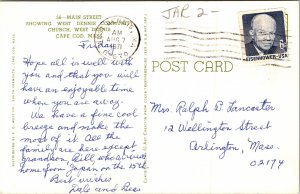 56-MAIN STREET
SHOWING WEST DENNIS COMMUNITY
CHURCH, WEST DENNIS
CAPE COD, MASS.
JAR 2-
AM
AUG
1971
EISENHOWER·USA
Friday
POST CARD
Hope all is well with
you and that you will
have an enjoyable time
when you are away.
We have a fine cool
breeze and make the
most of it. All the
family are here except
grandson, Bill, who arrives
home from Japan on the 15th
Best wishes
Mrs. Ralph B. Lancaster
12 Wellington Street
Arlington, Mass.
02174